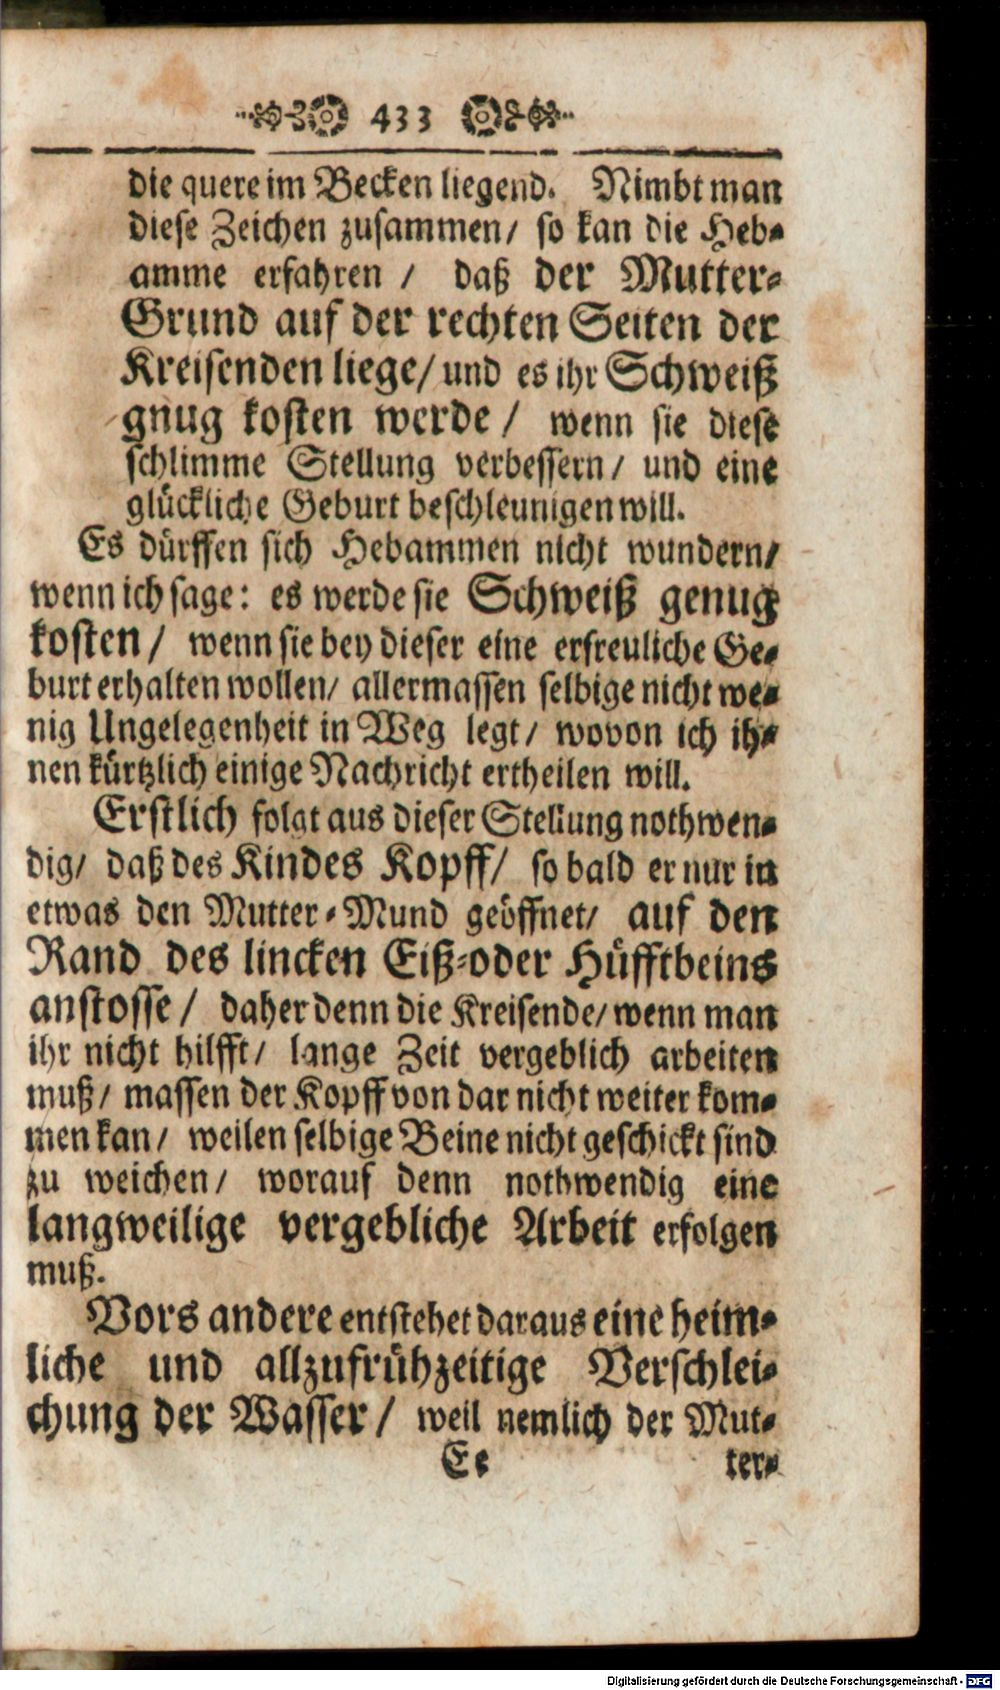 433
die quere im Becken liegend. Nimbt man
diese Zeichen zusammen/ so kan die Heb-
amme erfahren / daß der Mutter-
Grund auf der rechten Seiten der
Kreisenden liege/ und es ihr Schweiß
gnug kosten werde / wenn sie diese
schlimme Stellung verbessern/ und eine
glückliche Geburt beschleunigen will.
Es dürffen sich Hebammen nicht wundern/
wenn ich sage: es werde sie Schweiß genug
kosten/ wenn sie bey dieser eine erfreuliche Ge-
burt erhalten wollen/ allermassen selbige nicht we-
nig Ungelegenheit in Weg legt/ wovon ich ih-
nen kürtzlich einige Nachricht ertheilen will.
Erstlich folgt aus dieser Stellung nothwen-
dig/ daß des Kindes Kopff/ so bald er nur in
etwas den Mutter-Mund geöffnet/ auf den
Rand des lincken Eiß-oder Hüfftbeins
anstosse/ daher denn die Kreisende/ wenn man
ihr nicht hilfft/ lange Zeit vergeblich arbeiten
muß/ massen der Kopff von dar nicht weiter kom-
men kan/ weilen selbige Beine nicht geschickt sind
zu weichen/ worauf denn nothwendig eine
langweilige vergebliche Arbeit erfolgen
muß.
Vors andere entstehet daraus eine heim-
liche und allzufrühzeitige Verschlei-
chung der Wasser/ weil nemlich der Mut-
Ee ter-
Digitalisierung gefördert durch die Deutsche Forschungsgemeinschaft - DFG